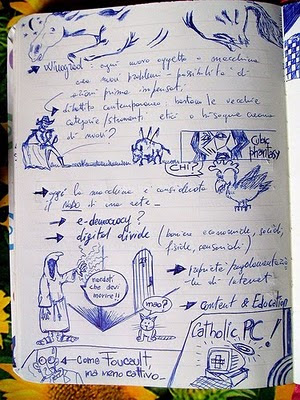 → Winograd: ogni nuovo oggetto - macchina
crea nuovi problemi - possibilità di
azioni prima impensati
→ dibattito contemporaneo: bastano le vecchie
categorie/strumenti etici o bisogna crearne
di nuovi?
Cyber
phantasy
CHI?
→ oggi la macchina è considerata
il nodo di una rete
→ e-democracy?
→ digital divide (barriere economiche, sociali,
fisiche, sensoriali)
ricordati
che devi
morire!!
miao?
→ di Internet
→ content & Education
Catholic PC!
← come Foucault,
ma meno cattivo..